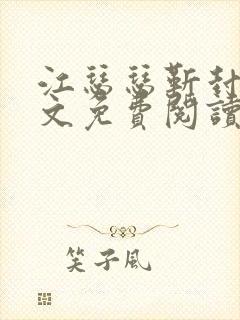 江瑟瑟靳封
文免費閱讀
笑子風